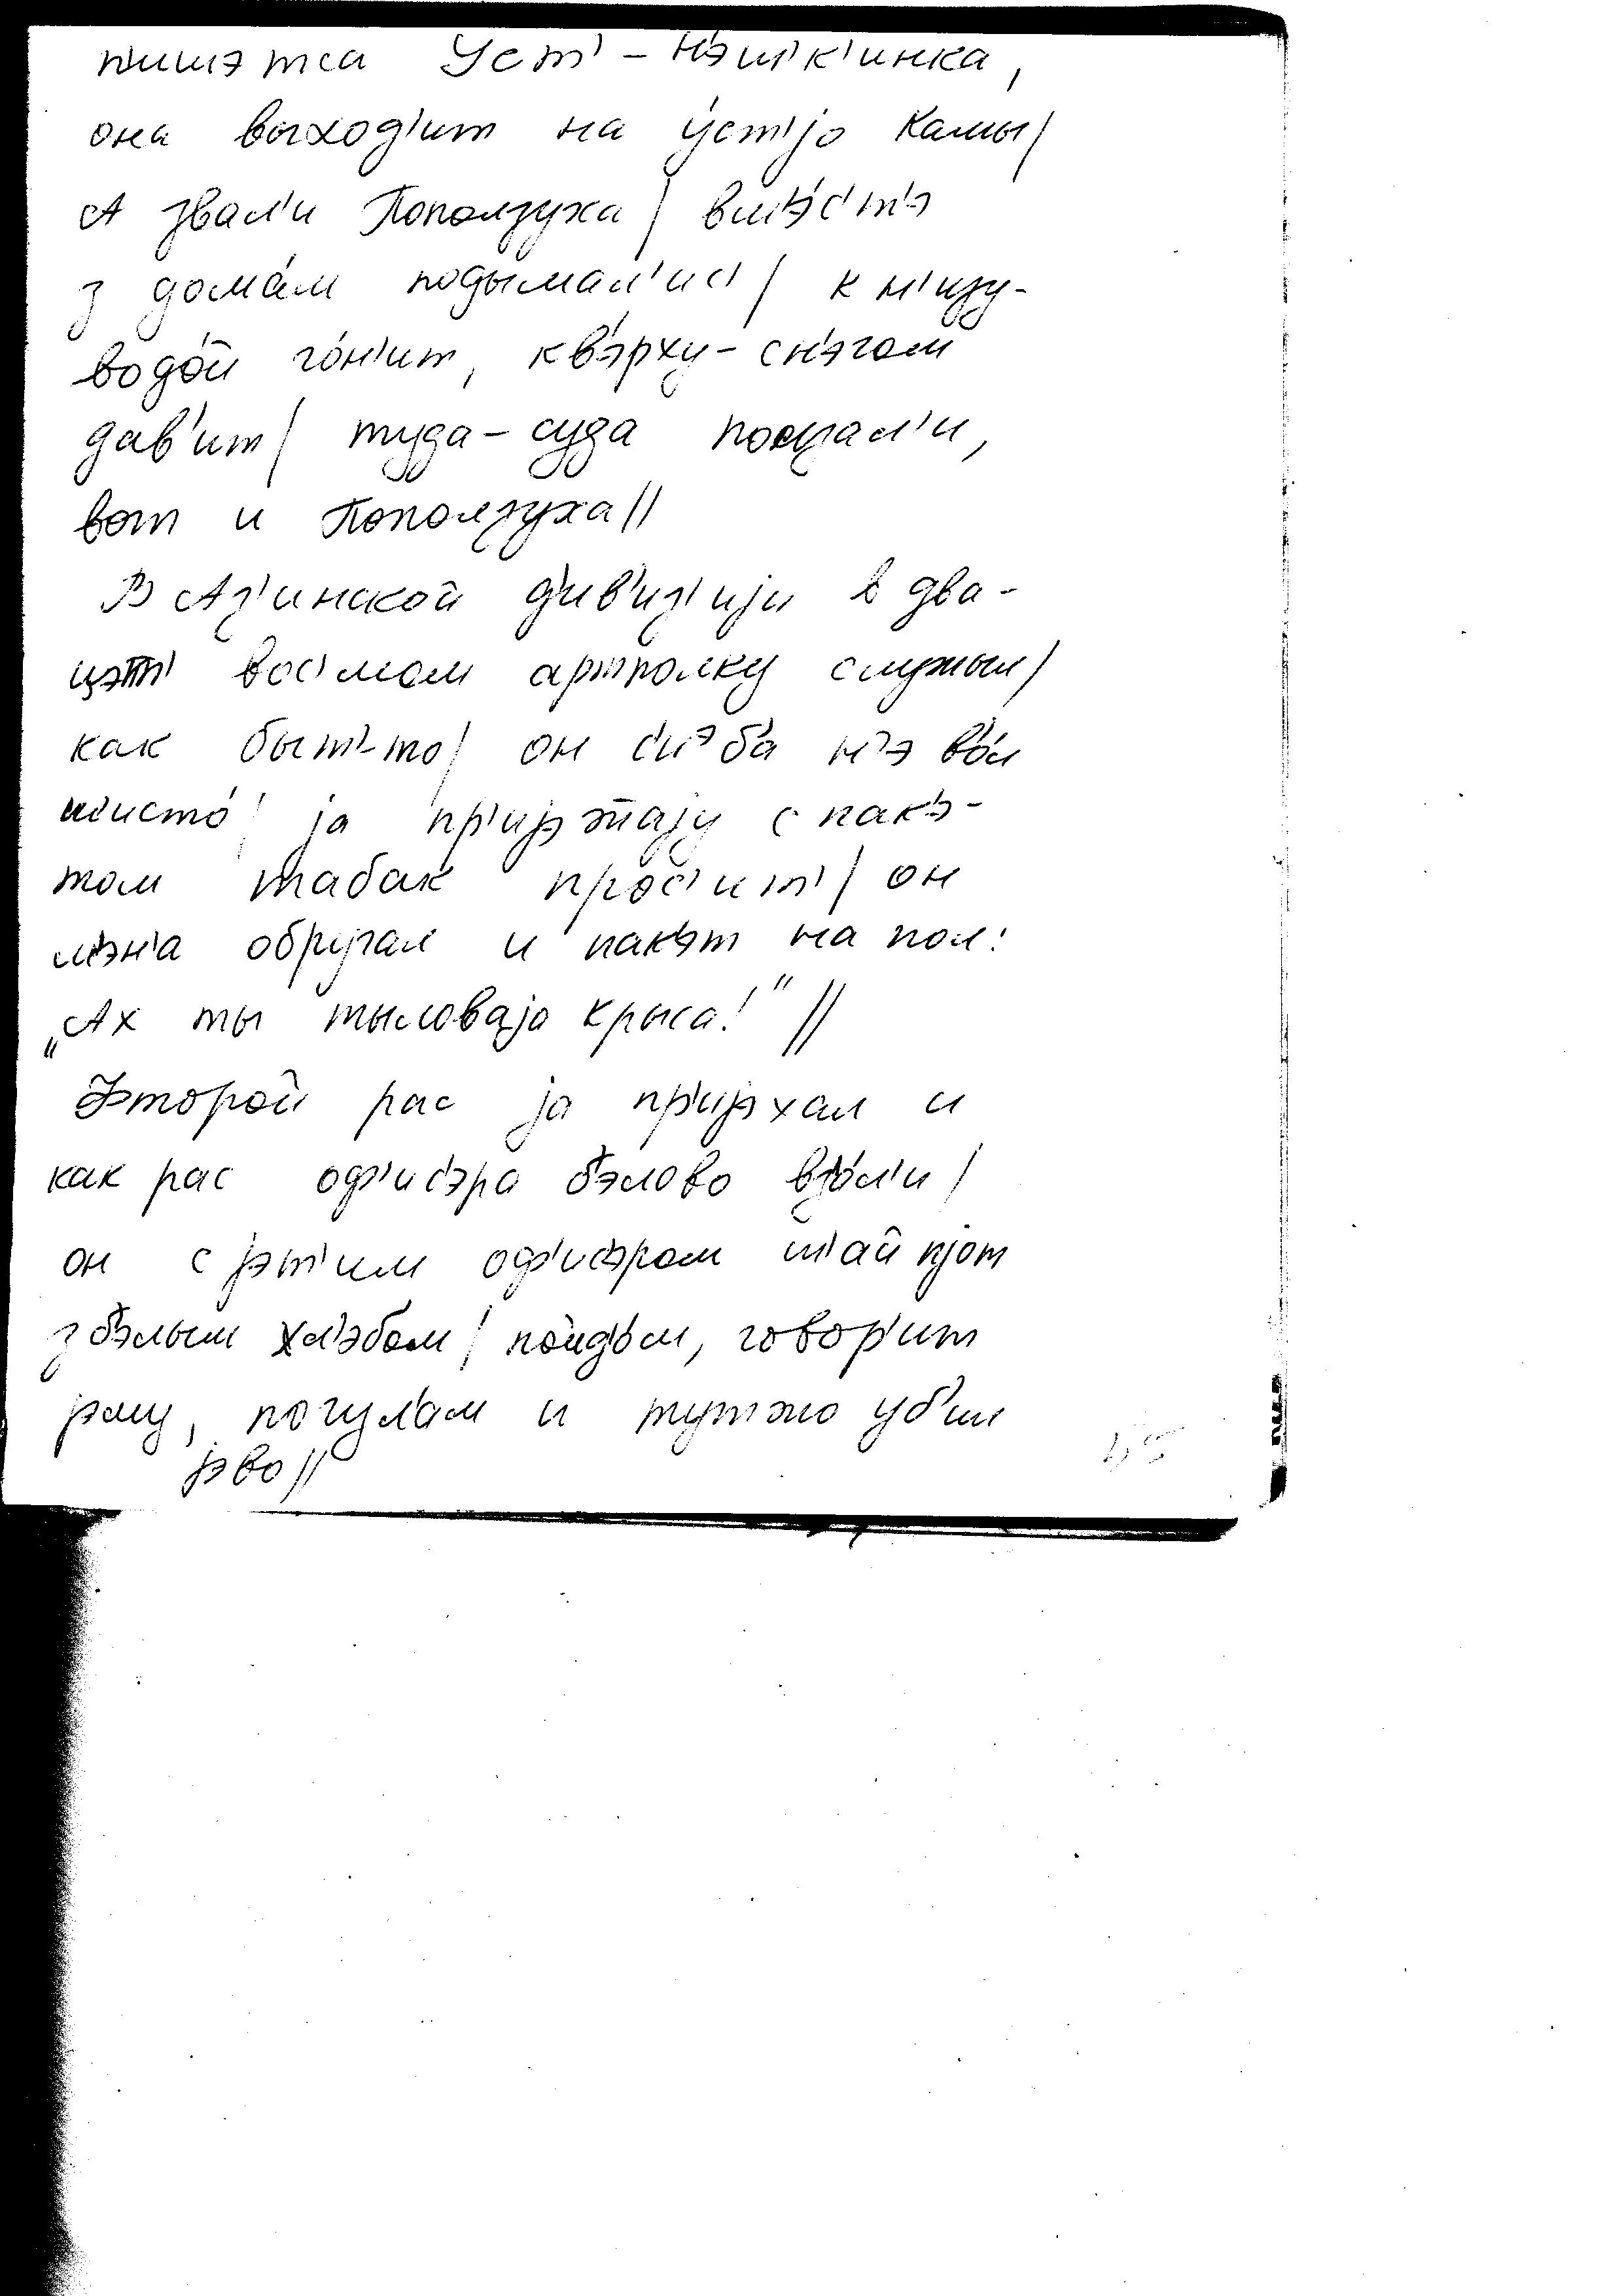 п'ишэтса Уст' - Н'эш'к'инка,
она выход'ит на у́ст'jо Камы/
А звал'и Поползуха/ вм'э́с'т'э
з дома́м подымал'ис'/ к н'изу-
водо́й го́н'ит, кв'э́рху - сн'эгом
дав'ит/ туда - суда
вот и Поползуха//
В Аз'инской д'ив'из'иjи в два-
цэт' вос'мом артполку служыл/
как быт'-то/ он с'иэб'а н'э в'о́л
ш'исто́/ jа п'р'иjэжаjу с пак'э-
том табак прос'ит'/ он
м'эн'а обругал и пак'эт на пол:
„Ах ты тыловаjа крыса!" //
Фторой рас jа пр'иjэхал и
как рас оф'ис'эра б'элово вз'а́л'и/
он с jэт'им оф'ис'эром ш'ай пjот
з б'элым хл'эбом/ пойд'о́м, говор'ит
jэму, погул'ам и тутжо уб'ил
jэво//
45